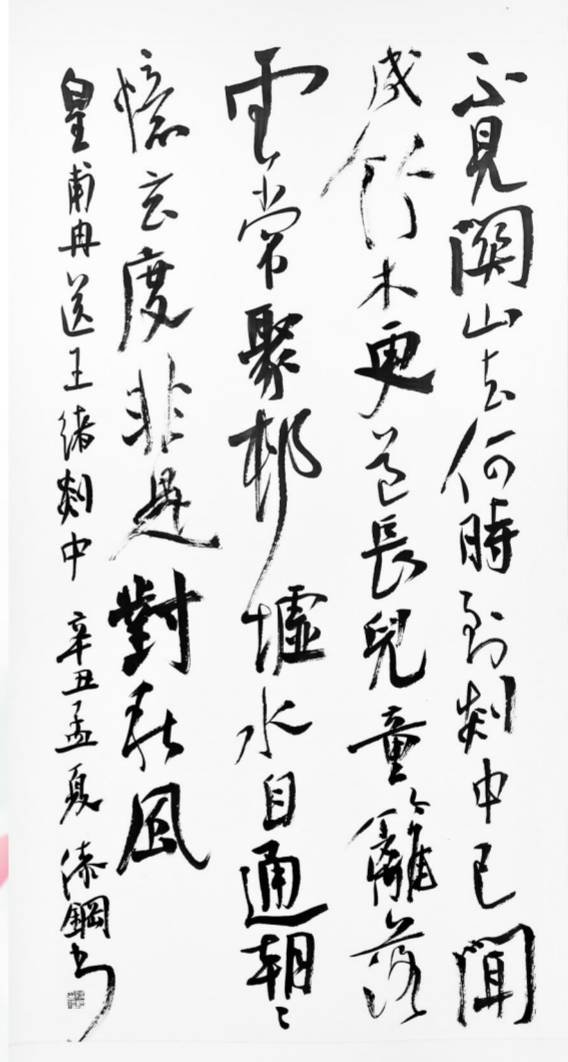 不見關山去何時到剡中已聞
成竹木更道長兒童籬落
雲常聚邨墟水自通朝〻
憶玄度非是對秋風
皇甫冉送王緒剡中 辛丑孟夏 漆鋼書